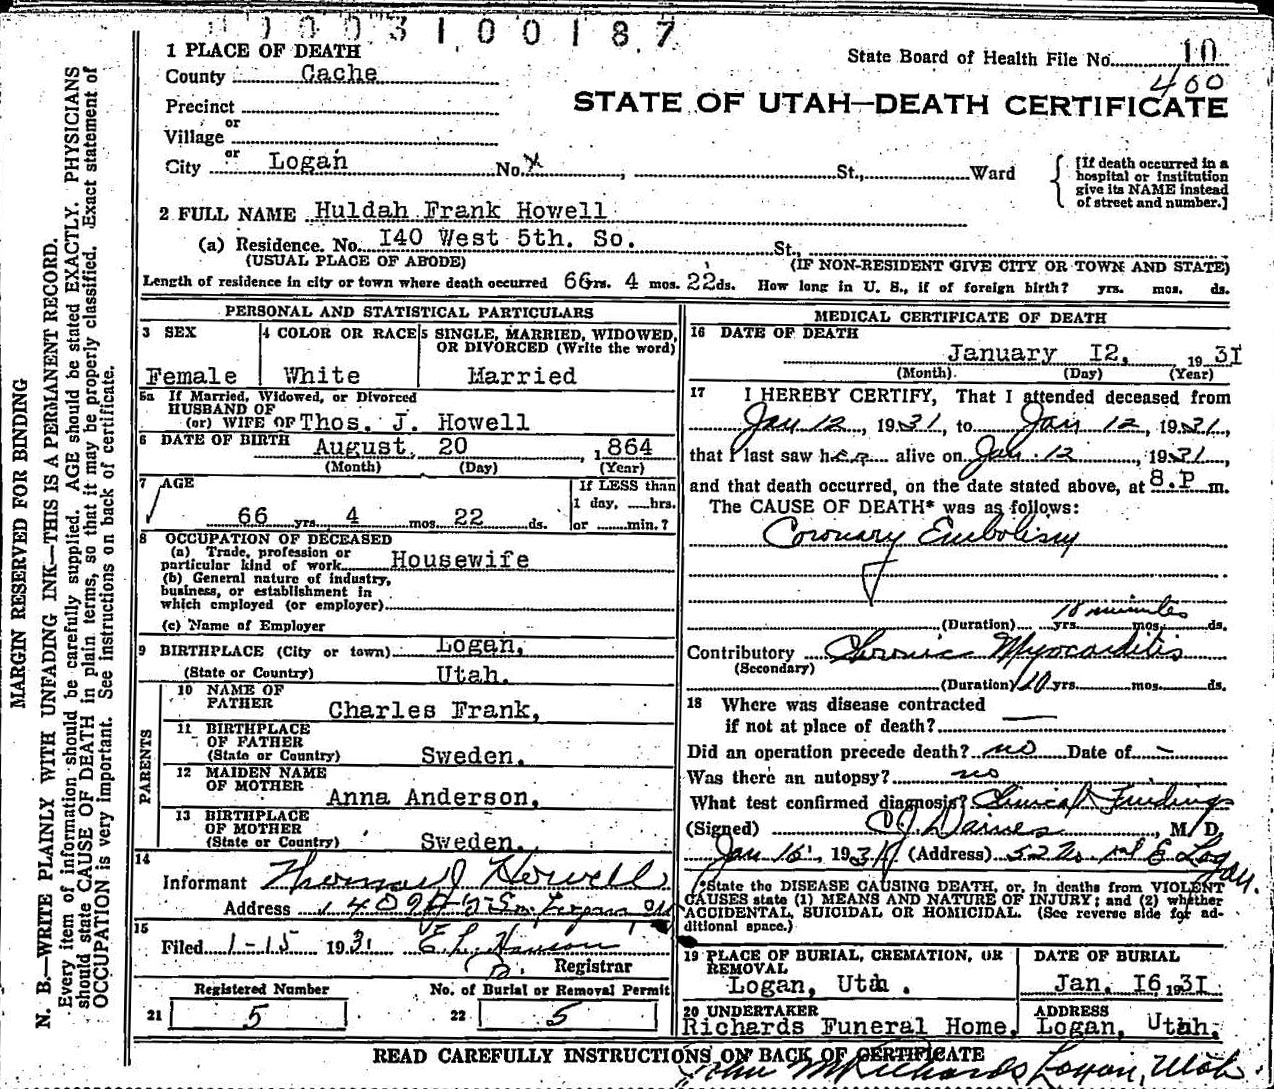 1003100187
1 PLACE OF DEATH
State Board of Health File No. 10
County Cache
400
Precinct
STATE OF UTAH—DEATH CERTIFICATE
or
Village
or
City Logan No. x St., Ward
[If death occurred in a hospital or institution give its NAME instead of street and number.]
2 FULL NAME Huldah Frank Howell
(a) Residence. No. I40 West 5th. So. St.,
(USUAL PLACE OF ABODE) (IF NON-RESIDENT GIVE CITY OR TOWN AND STATE)
Length of residence in city or town where death occurred 66 yrs. 4 mos. 22 ds. How long in U. S., if of foreign birth? yrs. mos. ds.
PERSONAL AND STATISTICAL PARTICULARS
3 SEX
Female
4 COLOR OR RACE
White
5 SINGLE, MARRIED, WIDOWED, OR DIVORCED (Write the word)
Married
5a If Married, Widowed, or Divorced
HUSBAND OF
(or) WIFE OF Thos. J. Howell
6 DATE OF BIRTH August, 20, 1864
(Month) (Day) (Year)
7 AGE
66 yrs. 4 mos. 22 ds.
If LESS than
1 day, hrs.
or min.?
8 OCCUPATION OF DECEASED
(a) Trade, profession or
particular kind of work Housewife
(b) General nature of industry,
business, or establishment in
which employed (or employer)
(c) Name of Employer
9 BIRTHPLACE (City or town) Logan,
(State or Country) Utah.
PARENTS
10 NAME OF
FATHER Charles Frank,
11 BIRTHPLACE
OF FATHER
(State or Country) Sweden.
12 MAIDEN NAME
OF MOTHER Anna Anderson,
13 BIRTHPLACE
OF MOTHER
(State or Country) Sweden.
14
Informant Thomas J Howell
Address 140 W 5 So Logan
15
Filed 1-15 1931 E. L. Hanson
Registrar
Registered Number No. of Burial or Removal Permit
21 5 22 5
MEDICAL CERTIFICATE OF DEATH
16 DATE OF DEATH
January I2, 1931
(Month) (Day) (Year)
17 I HEREBY CERTIFY, That I attended deceased from
Jan 12, 1931, to Jan 12, 1931,
that I last saw her alive on Jan. 12, 1931,
and that death occurred, on the date stated above, at 8.P m.
The CAUSE OF DEATH* was as follows:
Coronary Embolism
10 minutes
(Duration) yrs. mos. ds.
Contributory Chronic Myocarditis
(Secondary)
(Duration) 10 yrs. mos. ds.
18 Where was disease contracted
if not at place of death?
Did an operation precede death? no Date of —
Was there an autopsy? no
What test confirmed diagnosis? Clinical Findings
(Signed) C J Daines, M. D.
Jan 16, 1931 (Address) 52 No 1st E Logan.
*State the DISEASE CAUSING DEATH, or, in deaths from VIOLENT
CAUSES state (1) MEANS AND NATURE OF INJURY; and (2) whether
ACCIDENTAL, SUICIDAL OR HOMICIDAL. (See reverse side for ad-
ditional space.)
19 PLACE OF BURIAL, CREMATION, OR
REMOVAL
Logan, Utah.
DATE OF BURIAL
Jan. I6 1931
20 UNDERTAKER
Richards Funeral Home,
ADDRESS
Logan, Utah.
READ CAREFULLY INSTRUCTIONS ON BACK OF CERTIFICATE
John M Richards Logan, Utah.
MARGIN RESERVED FOR BINDING
N. B.—WRITE PLAINLY WITH UNFADING INK—THIS IS A PERMANENT RECORD.
Every item of information should be carefully supplied. AGE should be stated EXACTLY. PHYSICIANS
should state CAUSE OF DEATH in plain terms, so that it may be properly classified. Exact statement of
OCCUPATION is very important. See instructions on back of certificate.